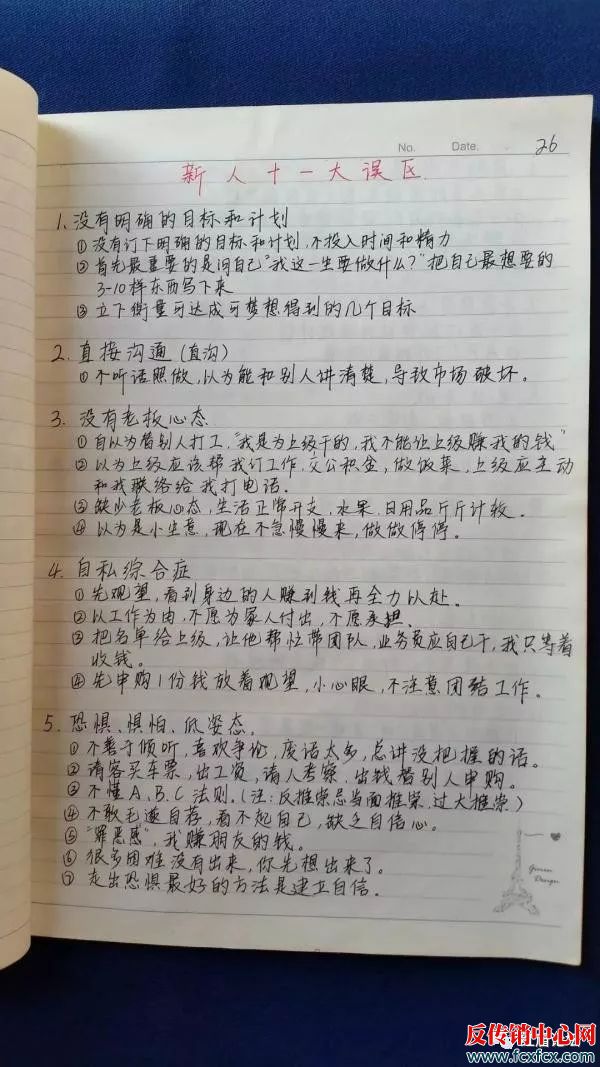 No. Date. 26
新人十一大误区
1. 没有明确的目标和计划
① 没有订下明确的目标和计划,不投入时间和精力
② 首先最重要的是问自己"我这一生要做什么?"把自己最想要的
3-10样东西写下来
③ 立下衡量可达成可梦想得到的几个目标
2. 直接沟通(直沟)
① 不听话照做,以为能和别人讲清楚,导致市场破坏。
3. 没有老板心态
① 自以为替别人打工,"我是为上级干的,我不能让上级赚我的钱"
② 以为上级应该帮我订工作,交公积金,做饭菜,上级应主动
和我联络给我打电话。
③ 缺少老板心态,生活正常开支,水果、日用品斤斤计较。
④ 以为是小生意,现在不急慢慢来,做做停停。
4. 自私综合症
① 先观望,看到身边的人赚到钱再全力以赴。
② 以工作为由,不愿为家人付出,不愿承担。
③ 把名单给上级,让他帮忙带团队,业务员应自己干,我只等着
收钱。
④ 先申购1份钱放着观望,小心眼,不注意团结工作。
5. 恐惧、惧怕、低姿态。
① 不善于倾听,喜欢争论,废话太多,总讲没把握的话。
② 请客买车票,出工资,请人考察,出钱替别人申购。
③ 不懂A、B、C法则。(注:反推崇忌当面推崇,过大推崇)
④ 不敢毛遂自荐,看不起自己,缺乏自信心。
⑤ "罪恶感",我赚朋友的钱。
⑥ 很多困难没有出来,你先想出来了。
⑦ 走出恐惧最好的方法是建立自信。
反传销中心网
www.fcxfcx.com